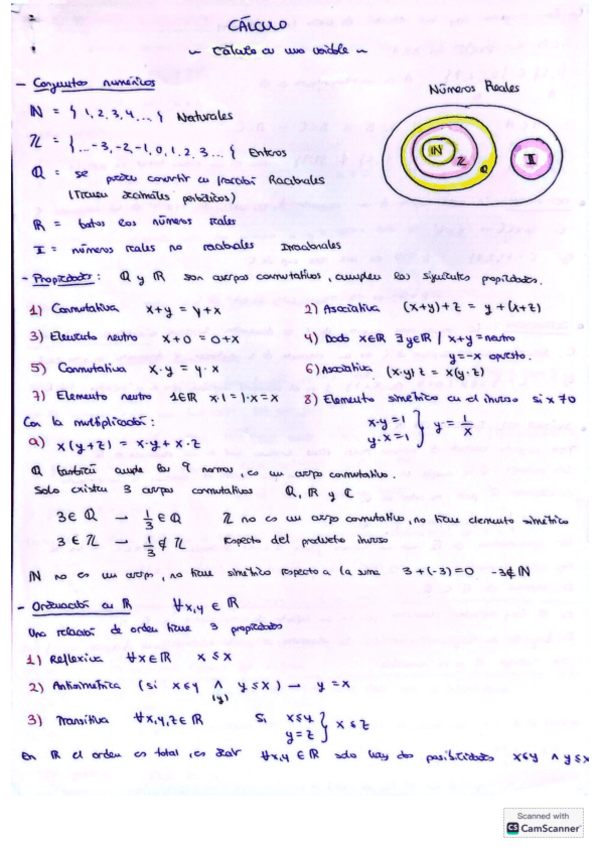 CÁLCULO
~ Cálculo en una variable ~
- Conjuntos numéricos
Números Reales
ℕ = { 1, 2, 3, 4, ... } Naturales
ℤ = { ... -3, -2, -1, 0, 1, 2, 3 ... { Enteros
ℚ = se pueden convertir en fracción Racionales
(Tienen decimales periódicos)
ℝ = todos los números reales
I = números reales no racionales Irracionales
ℕ
ℤ
ℚ
I
- Propiedades: ℚ y ℝ son cuerpos conmutativos, cumplen las siguientes propiedades.
1) Conmutativa x+y = y+x
2) Asociativa (x+y)+z = y+(x+z)
3) Elemento neutro x+0 = 0+x
4) Dado x∈ℝ ∃y∈ℝ / x+y = neutro
y=-x opuesto.
5) Conmutativa x·y = y·x
6) Asociativa (x·y)z = x(y·z)
7) Elemento neutro 1∈ℝ x·1 = 1·x = x
8) Elemento simétrico es el inverso si x≠0
x·y=1
y·x=1 } y = 1/x
Con la multiplicación:
a) x(y+z) = x·y + x·z
ℚ también cumple las 9 normas, es un cuerpo conmutativo.
Solo existen 3 cuerpos conmutativos ℚ, ℝ y ℂ
3∈ℚ → 1/3 ∈ ℚ ℤ no es un cuerpo conmutativo, no tiene elemento simétrico
3∈ℤ → 1/3 ∉ ℤ respecto del producto inverso
ℕ no es un cuerpo, no tiene simétrico respecto a la suma 3+(-3)=0 -3∉ℕ
- Ordenación en ℝ ∀x,y ∈ ℝ
Una relación de orden tiene 3 propiedades
1) Reflexiva ∀x∈ℝ x≤x
2) Antisimétrica (si x≤y ∧ y≤x) → y=x
(y)
3) Transitiva ∀x,y,z∈ℝ Si x≤y
y=z } x≤z
En ℝ el orden es total, es decir ∀x,y ∈ℝ solo hay dos posibilidades x≤y ∧ y≤x
Scanned with
CS CamScanner